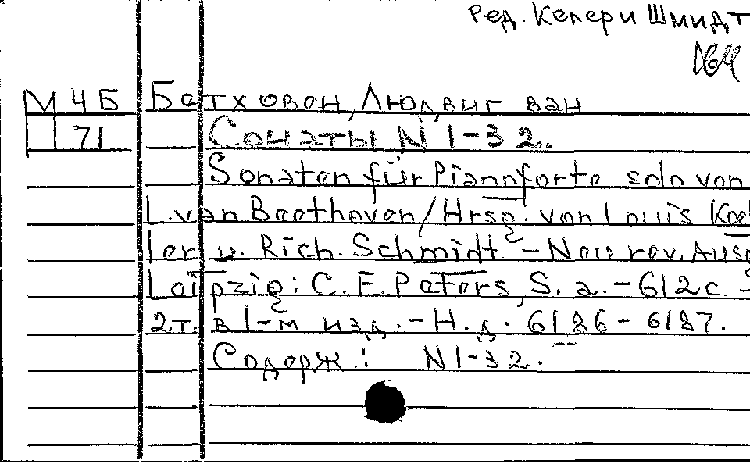 Ред. Келер и Шмидт
М4Б Бетховен, Людвиг ван
71 Сонаты N 1-32.
Sonaten für Pianoforte solo von
L. van Beethoven / Hrsg. von Louis Koeh-
ler u. Rich. Schmidt. - Neu rev. Ausg.
Leipzig: C. F. Peters, S. a. - 612 c. -
2 т. в 1-м изд. - Н. д. 6186 - 6187.
Содерж.: N 1-32.